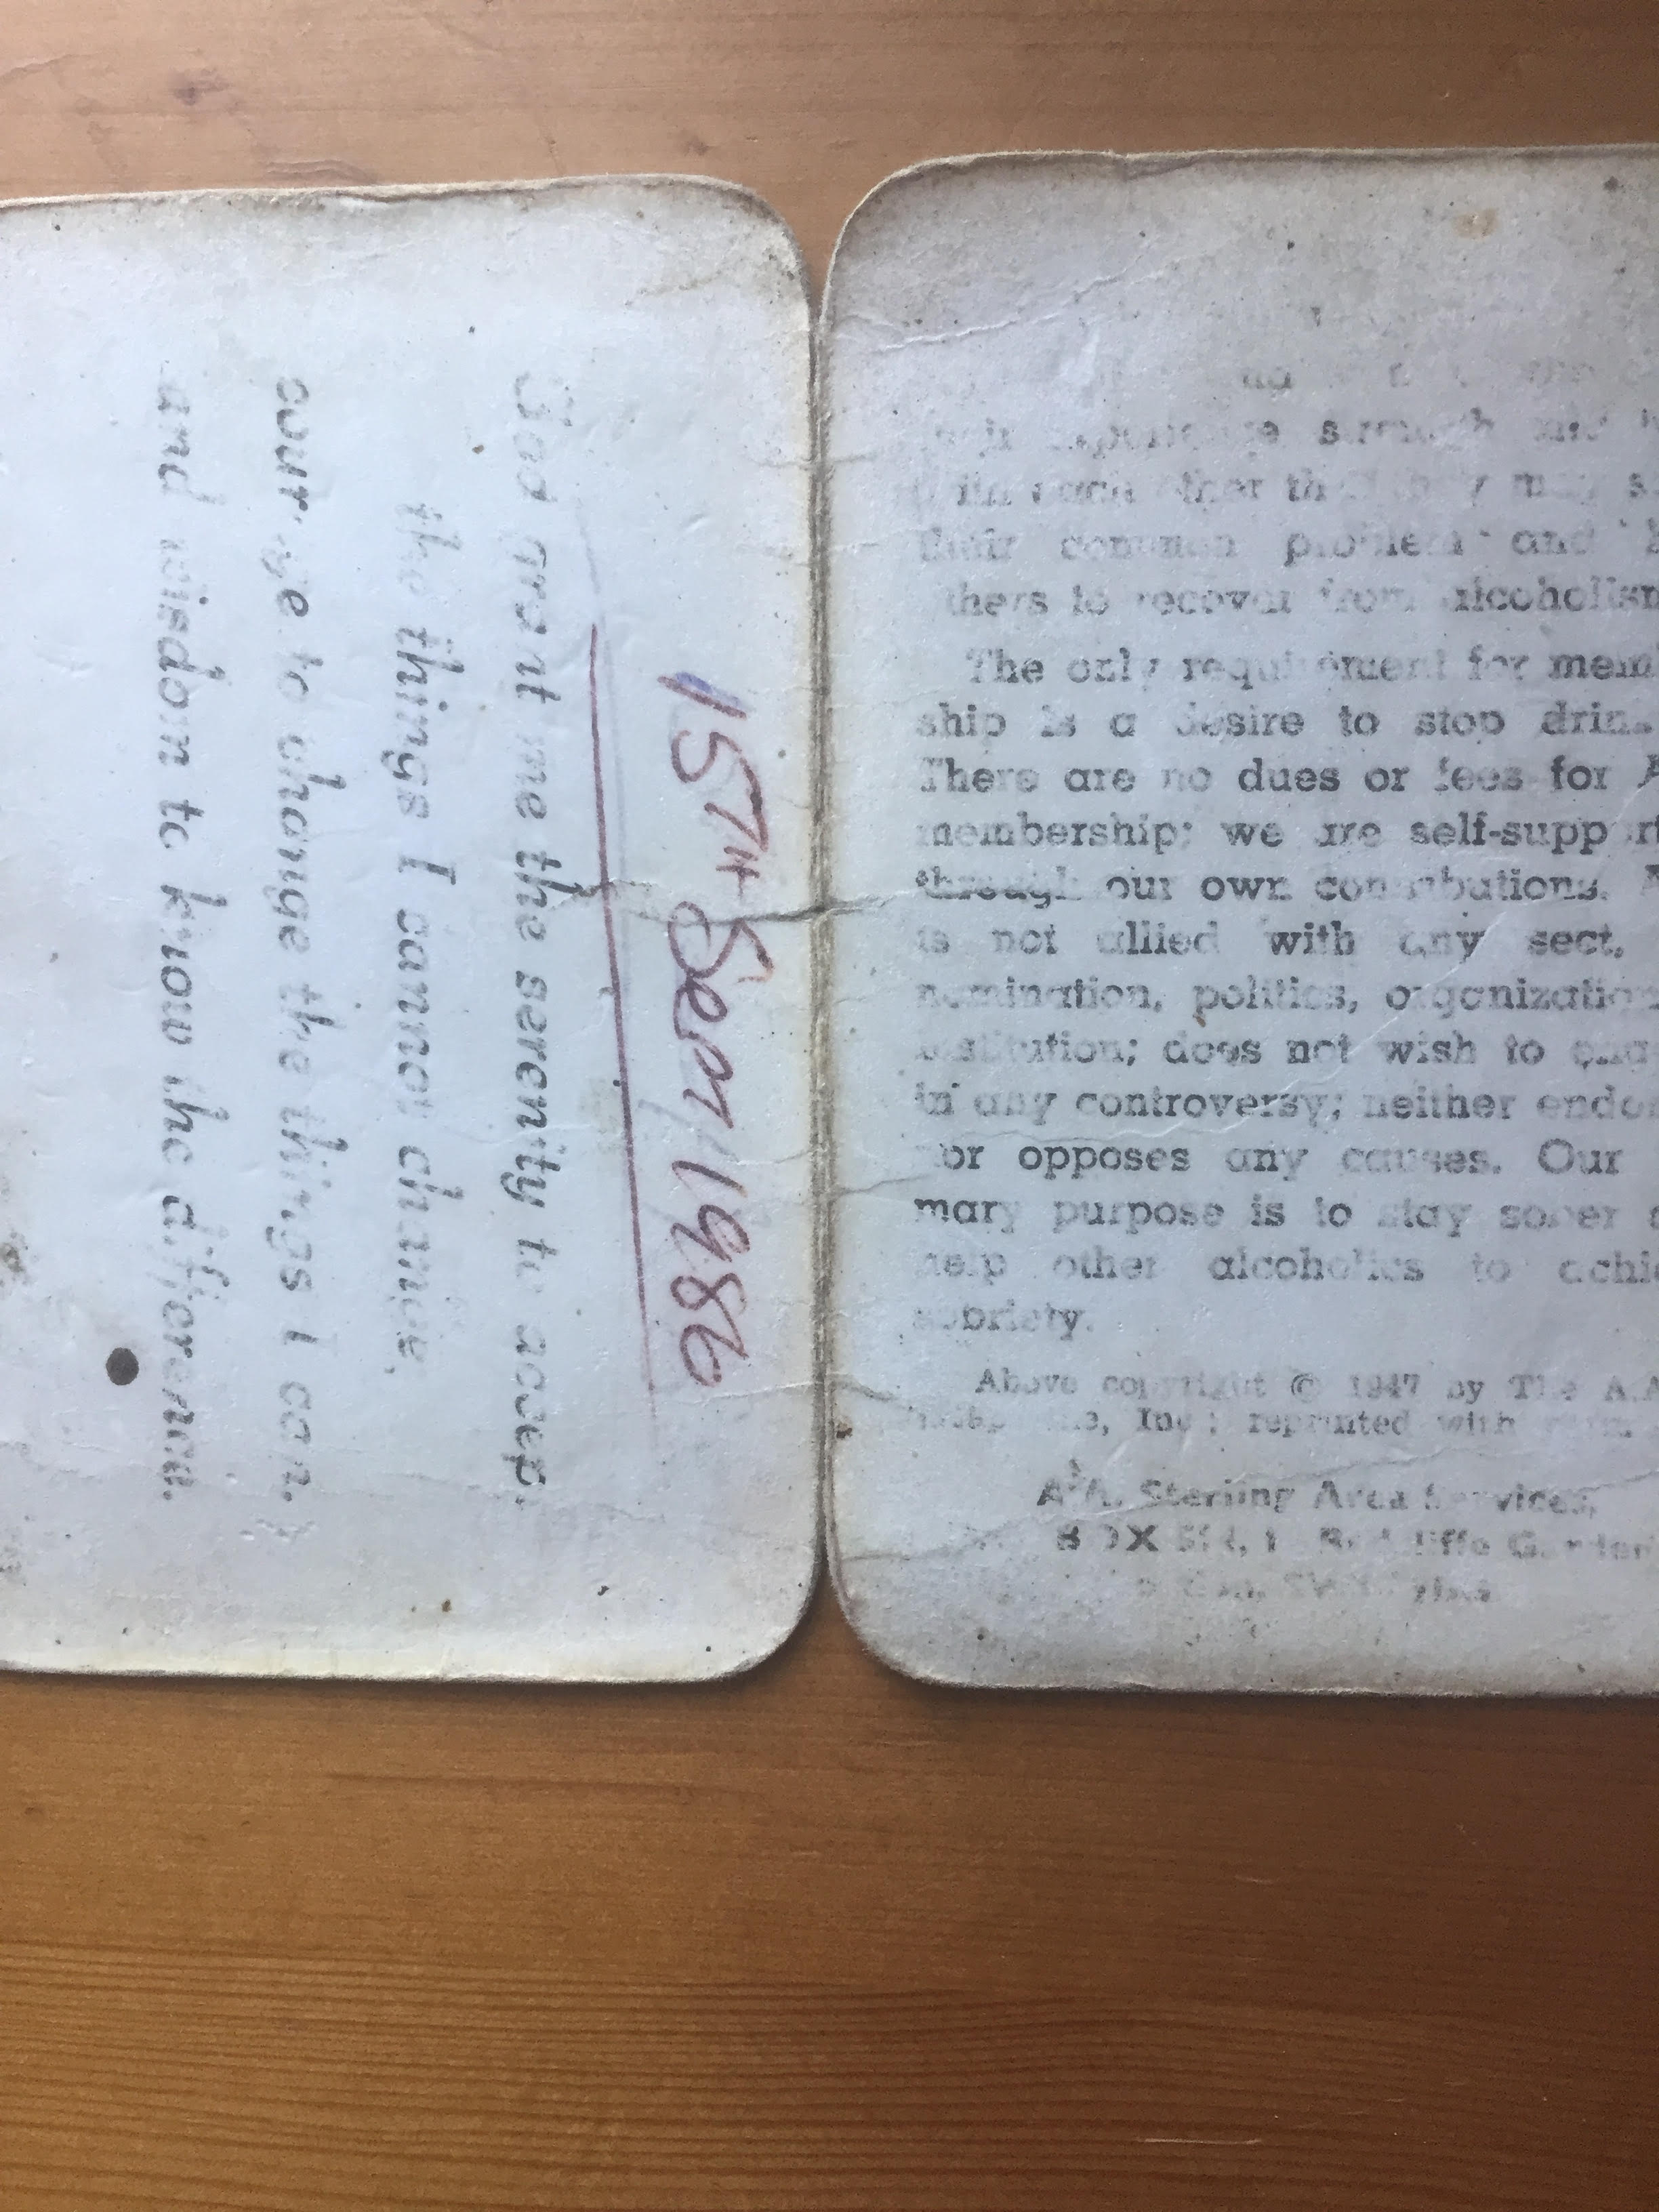 1ST Sept 1986
God grant me the serenity to accept
the things I cannot change,
courage to change the things I can,
and wisdom to know the difference.
their experience strength and
with each other that they may
their common problem and
others to recover from alcoholism
The only requirement for mem
ship is a desire to stop drin
There are no dues or fees for A
membership; we are self-support
through our own contributions. A
is not allied with any sect,
nomination, politics, organization
institution; does not wish to eng
in any controversy; neither endor
nor opposes any causes. Our
mary purpose is to stay sober a
help other alcoholics to achie
sobriety.
Above copyright © 1947 by The A.A
Inc; reprinted with
A.A. Sterling Area Services,
BOX 514, Redcliffe Garden